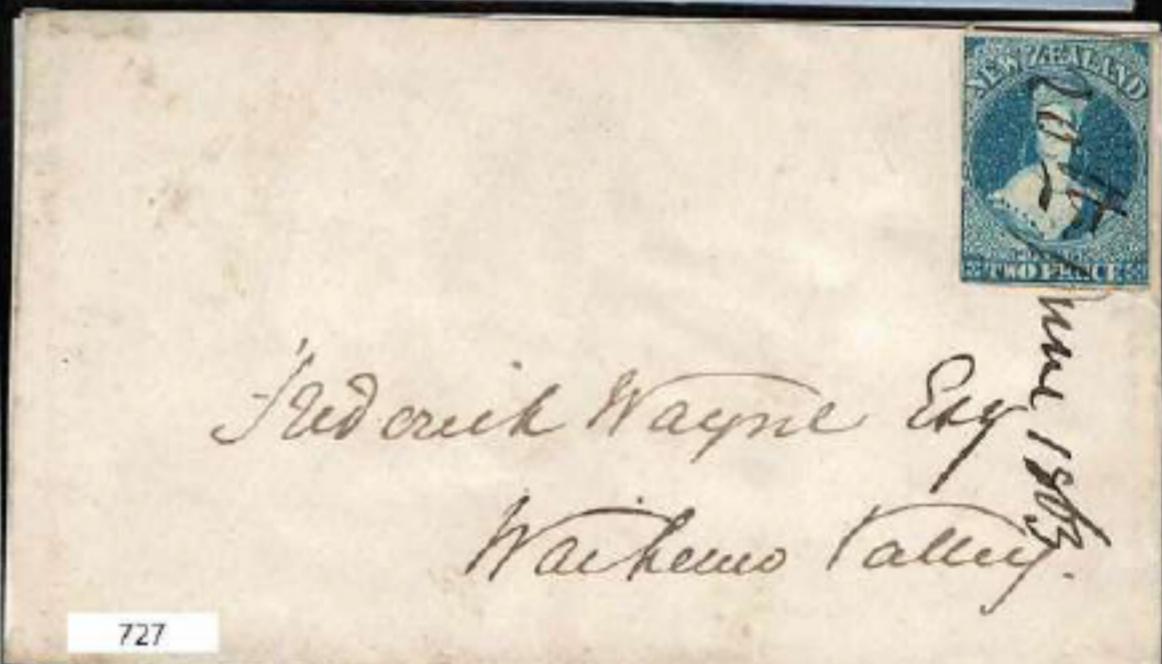 NEW ZEALAND
TWO PENCE
20th June 1863
Frederick Wayne Esq
Waihemo Valley.
727